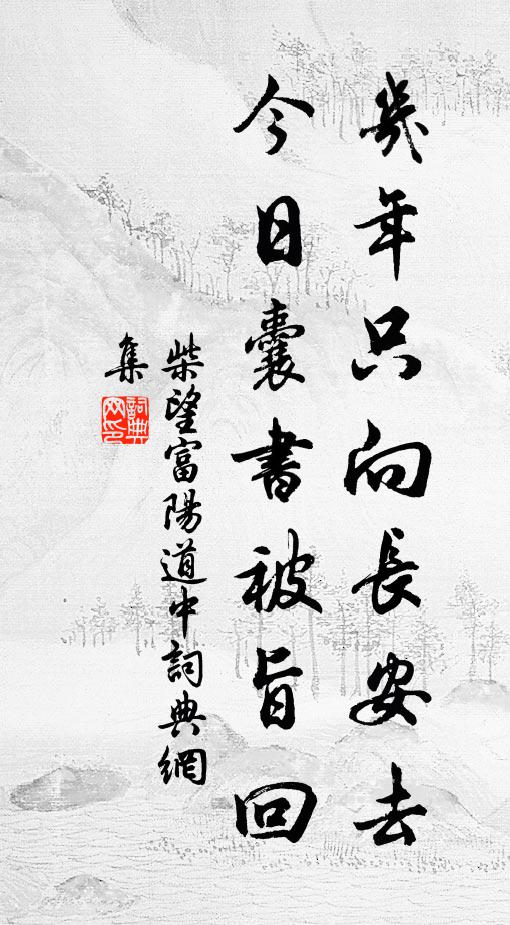 幾年只向長安去
今日囊書被旨回
柴望富陽道中詞典網
集
詞典網印